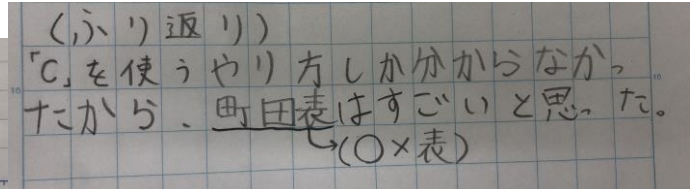 (ふり返り)
「C」を使うやり方しか分からなかっ
たから、町田表はすごいと思った。
→(○×表)